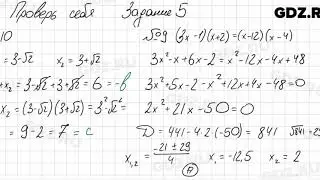 Проверь себя Задание 5
GDZ.RU
10
= 3-√2 x₂ = 3+√2
= 3-√2+3+√2 = 6 = -в
x₂ = (3-√2)(3+√2) = 3²-√2² =
= 9-2 = 7 = c
№9 (3x-1)(x+2) = (x-12)(x-4)
3x²-x+6x-2 = x²-12x-4x+48
3x²+5x-2-x²+12x+4x-48=0
2x²+21x-50=0
D = 441-4·2·(-50) = 841 √841=29
x₁,₂ = (-21±29)/4 x₁ = -12,5 x₂ = 2